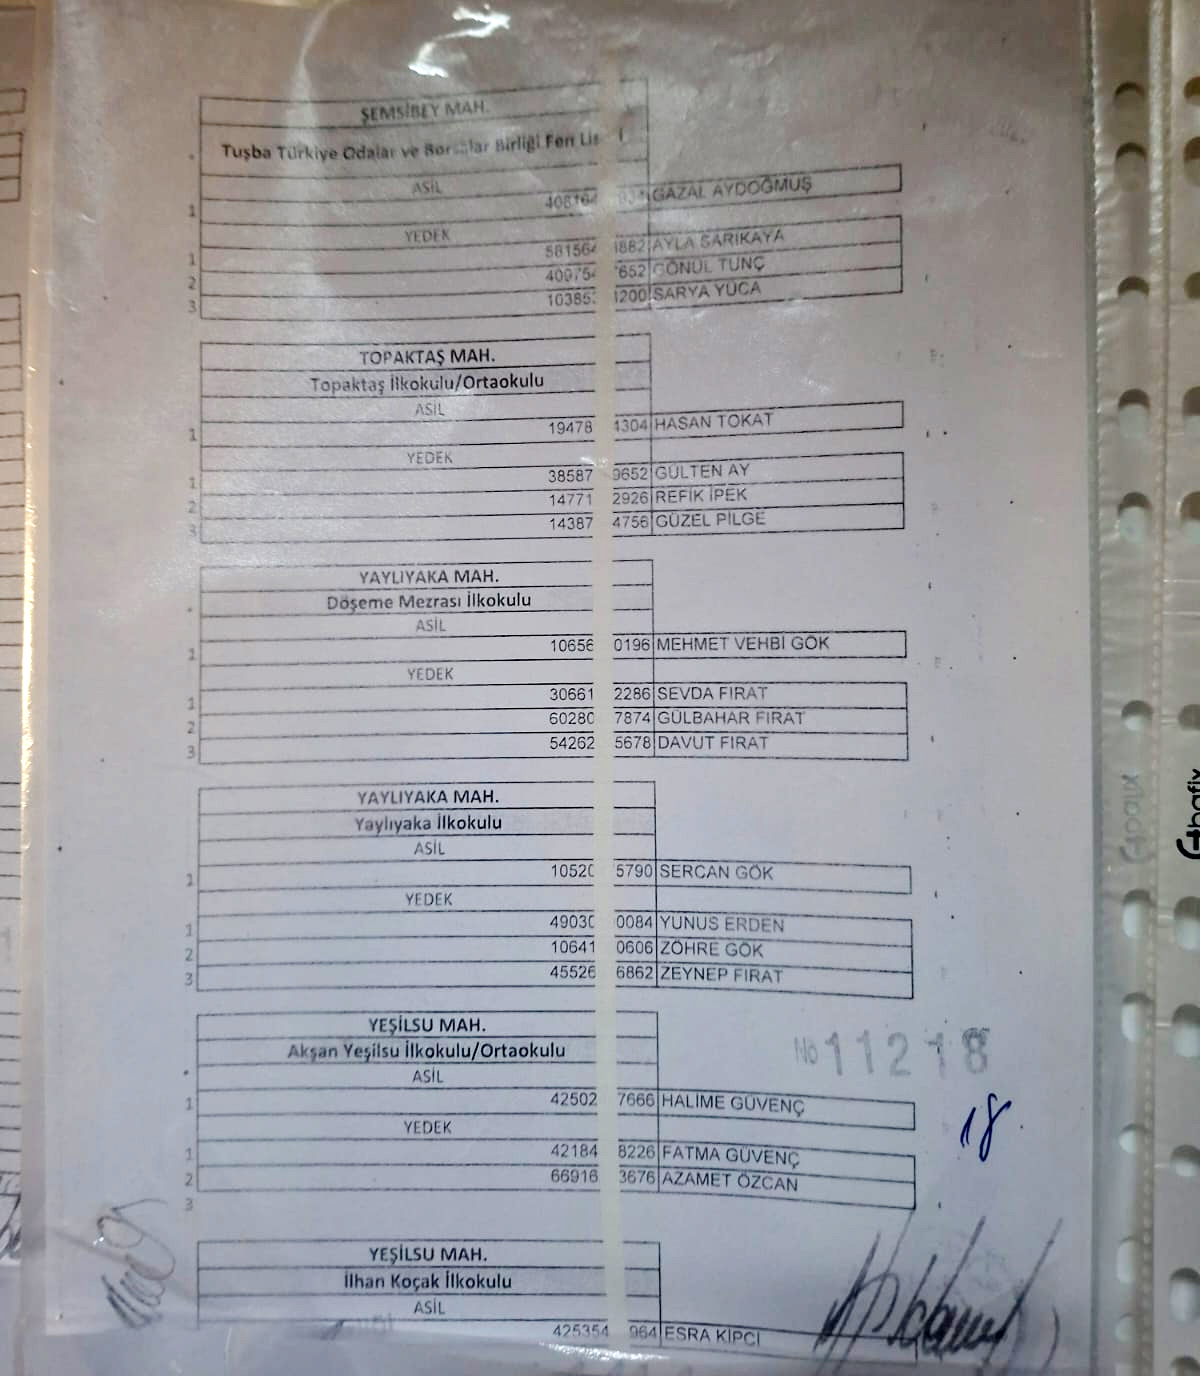 ŞEMSİBEY MAH.
Tuşba Türkiye Odalar ve Borsalar Birliği Fen
ASİL
1 408164 GAZAL AYDOĞMUŞ
YEDEK
1 581564 882 AYLA SARIKAYA
2 409754 7652 GÖNÜL TUNÇ
3 10385 200 SARYA YUCA
TOPAKTAŞ MAH.
Topaktaş İlkokulu/Ortaokulu
ASİL
1 19478 4304 HASAN TOKAT
YEDEK
1 38587 9652 GÜLTEN AY
2 14771 2926 REFİK İPEK
3 14387 4756 GÜZEL PİLGE
YAYLIYAKA MAH.
Döşeme Mezrası İlkokulu
ASİL
1 10656 0196 MEHMET VEHBİ GÖK
YEDEK
1 30661 2286 SEVDA FIRAT
2 60280 7874 GÜLBAHAR FIRAT
3 54262 5678 DAVUT FIRAT
YAYLIYAKA MAH.
Yaylıyaka İlkokulu
ASİL
1 10520 5790 SERCAN GÖK
YEDEK
1 49030 0084 YUNUS ERDEN
2 10641 0606 ZÖHRE GÖK
3 45526 6862 ZEYNEP FIRAT
YEŞİLSU MAH.
Akşan Yeşilsu İlkokulu/Ortaokulu
No 11218
ASİL
1 42502 7666 HALİME GÜVENÇ
18
YEDEK
1 42184 8226 FATMA GÜVENÇ
2 66916 3676 AZAMET ÖZCAN
3
YEŞİLSU MAH.
İlhan Koçak İlkokulu
ASİL
425354 964 ESRA KİPCİ
bafix